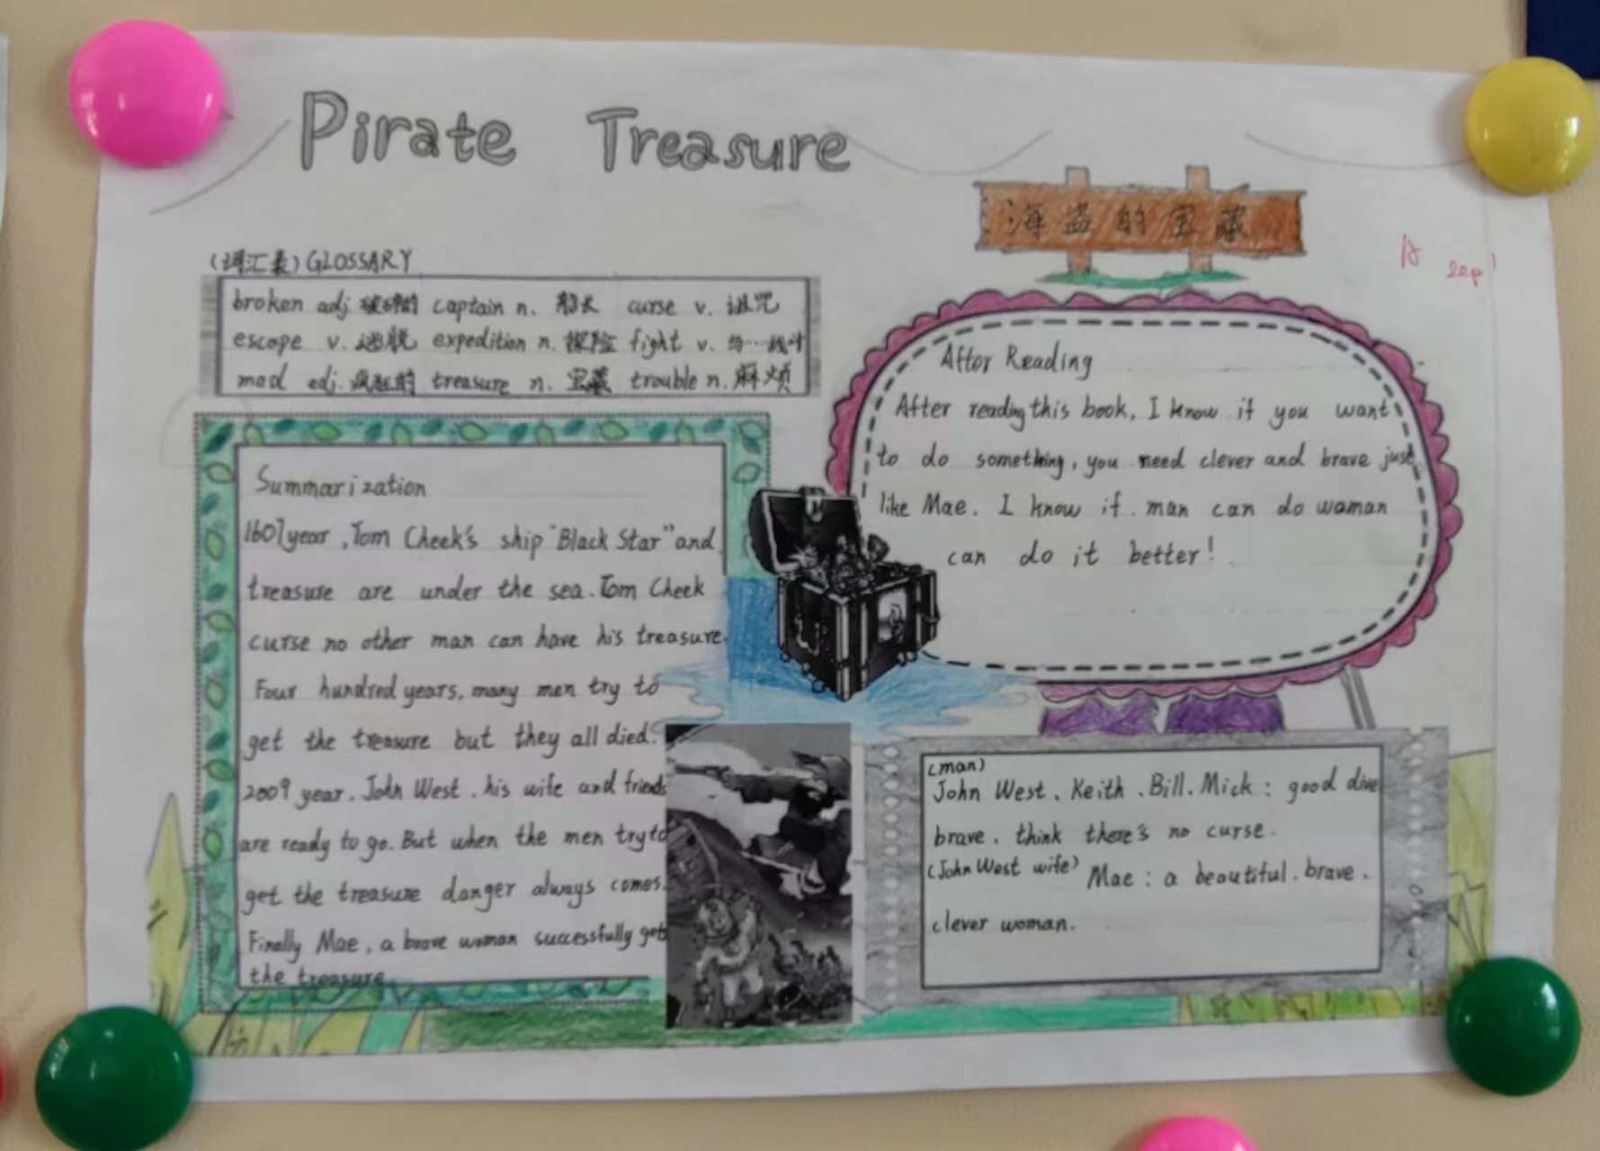 Pirate Treasure
海盗的宝藏
(词汇表) GLOSSARY
broken adj. 破碎的 captain n. 船长 curse v. 诅咒
escope v. 逃脱 expedition n. 探险 fight v. 与…战斗
mad adj. 疯狂的 treasure n. 宝藏 trouble n. 麻烦
Summarization
1607year, Tom Cheek's ship "Black Star" and
treasure are under the sea. Tom Cheek
curse no other man can have his treasure.
Four hundred years, many men try to
get the treasure but they all died.
2009 year, John West, his wife and friends
are ready to go. But when the men try to
get the treasure danger always comes.
Finally Mae, a brave woman successfully gets
the treasure.
After Reading
After reading this book, I know if you want
to do something, you need clever and brave just
like Mae. I know if man can do woman
can do it better!
(man)
John West、Keith、Bill、Mick: good dive
brave, think there's no curse.
(John West wife) Mae: a beautiful, brave,
clever woman.
A